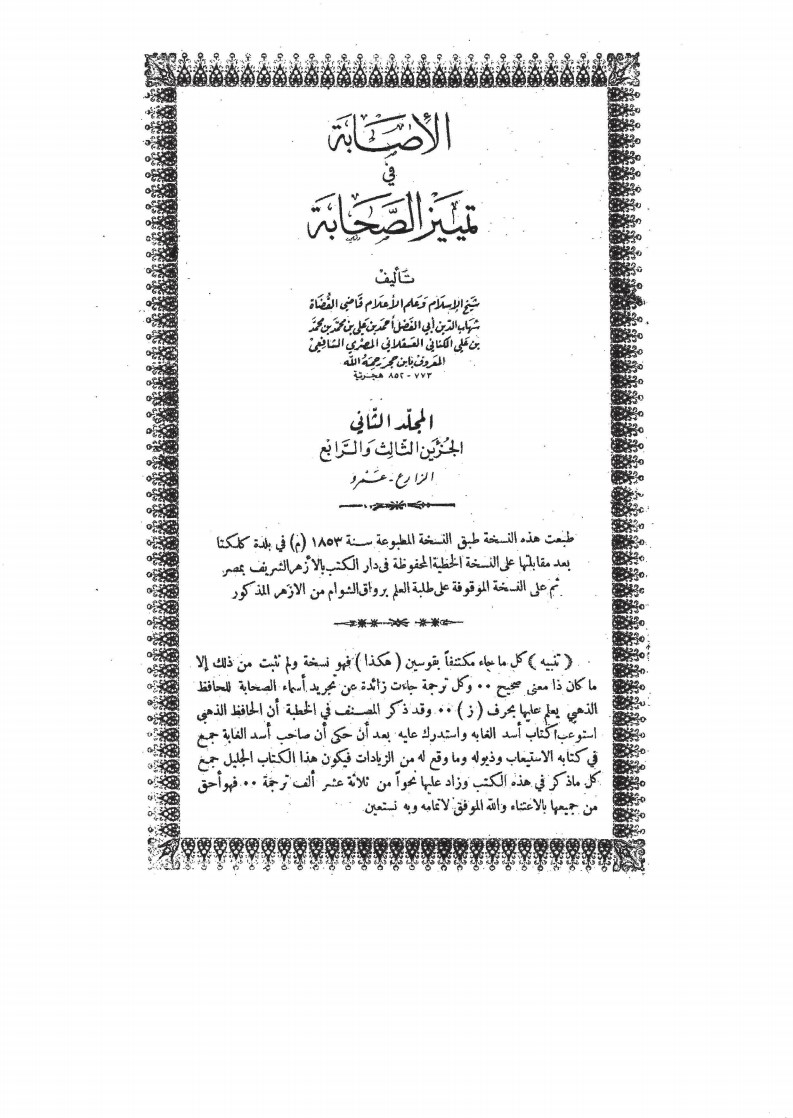 الإصابة
في
تمييز الصحابة
تأليف
شيخ الإسلام وعلم الأعلام قاضي القضاة
شهاب الدين أبي الفضل أحمد بن علي بن محمد بن محمد
بن علي الكناني العسقلاني المصري الشافعي
المعروف بابن حجر رحمه الله
٧٧٣ - ٨٥٢ هجرية
المجلد الثاني
الجزئين الثالث والرابع
الزارع - عمرو
طبعت هذه النسخة طبق النسخة المطبوعة سنة ١٨٥٣ (م) في بلدة كلكتا
بعد مقابلتها على النسخة الخطية المحفوظة في دار الكتب بالأزهر الشريف بمصر
ثم على النسخة الموقوفة على طلبة العلم برواق الشوام من الازهر المذكور
( تنبيه ) كل ما جاء مكتنفاً بقوسين ( هكذا ) فهو نسخة ولم نثبت من ذلك إلا
ما كان ذا معنى صحيح ٠٠ وكل ترجمة جاءت زائدة عن تجريد أسماء الصحابة للحافظ
الذهبي يعلم عليها بحرف ( ز ) ٠٠ وقد ذكر المصنف في الخطبة أن الحافظ الذهبي
استوعب اكتاب أسد الغابه واستدرك عليه بعد أن حكى أن صاحب أسد الغابة جمع
في كتابه الاستيعاب وذيوله وما وقع له من الزيادات فيكون هذا الكتاب الجليل جمع
كل ماذكر في هذه الكتب وزاد عليها نحواً من ثلاثة عشر ألف ترجمة ٠٠ فهو أحق
من جميعها بالاعتناء والله الموفق لاتمامه وبه نستعين